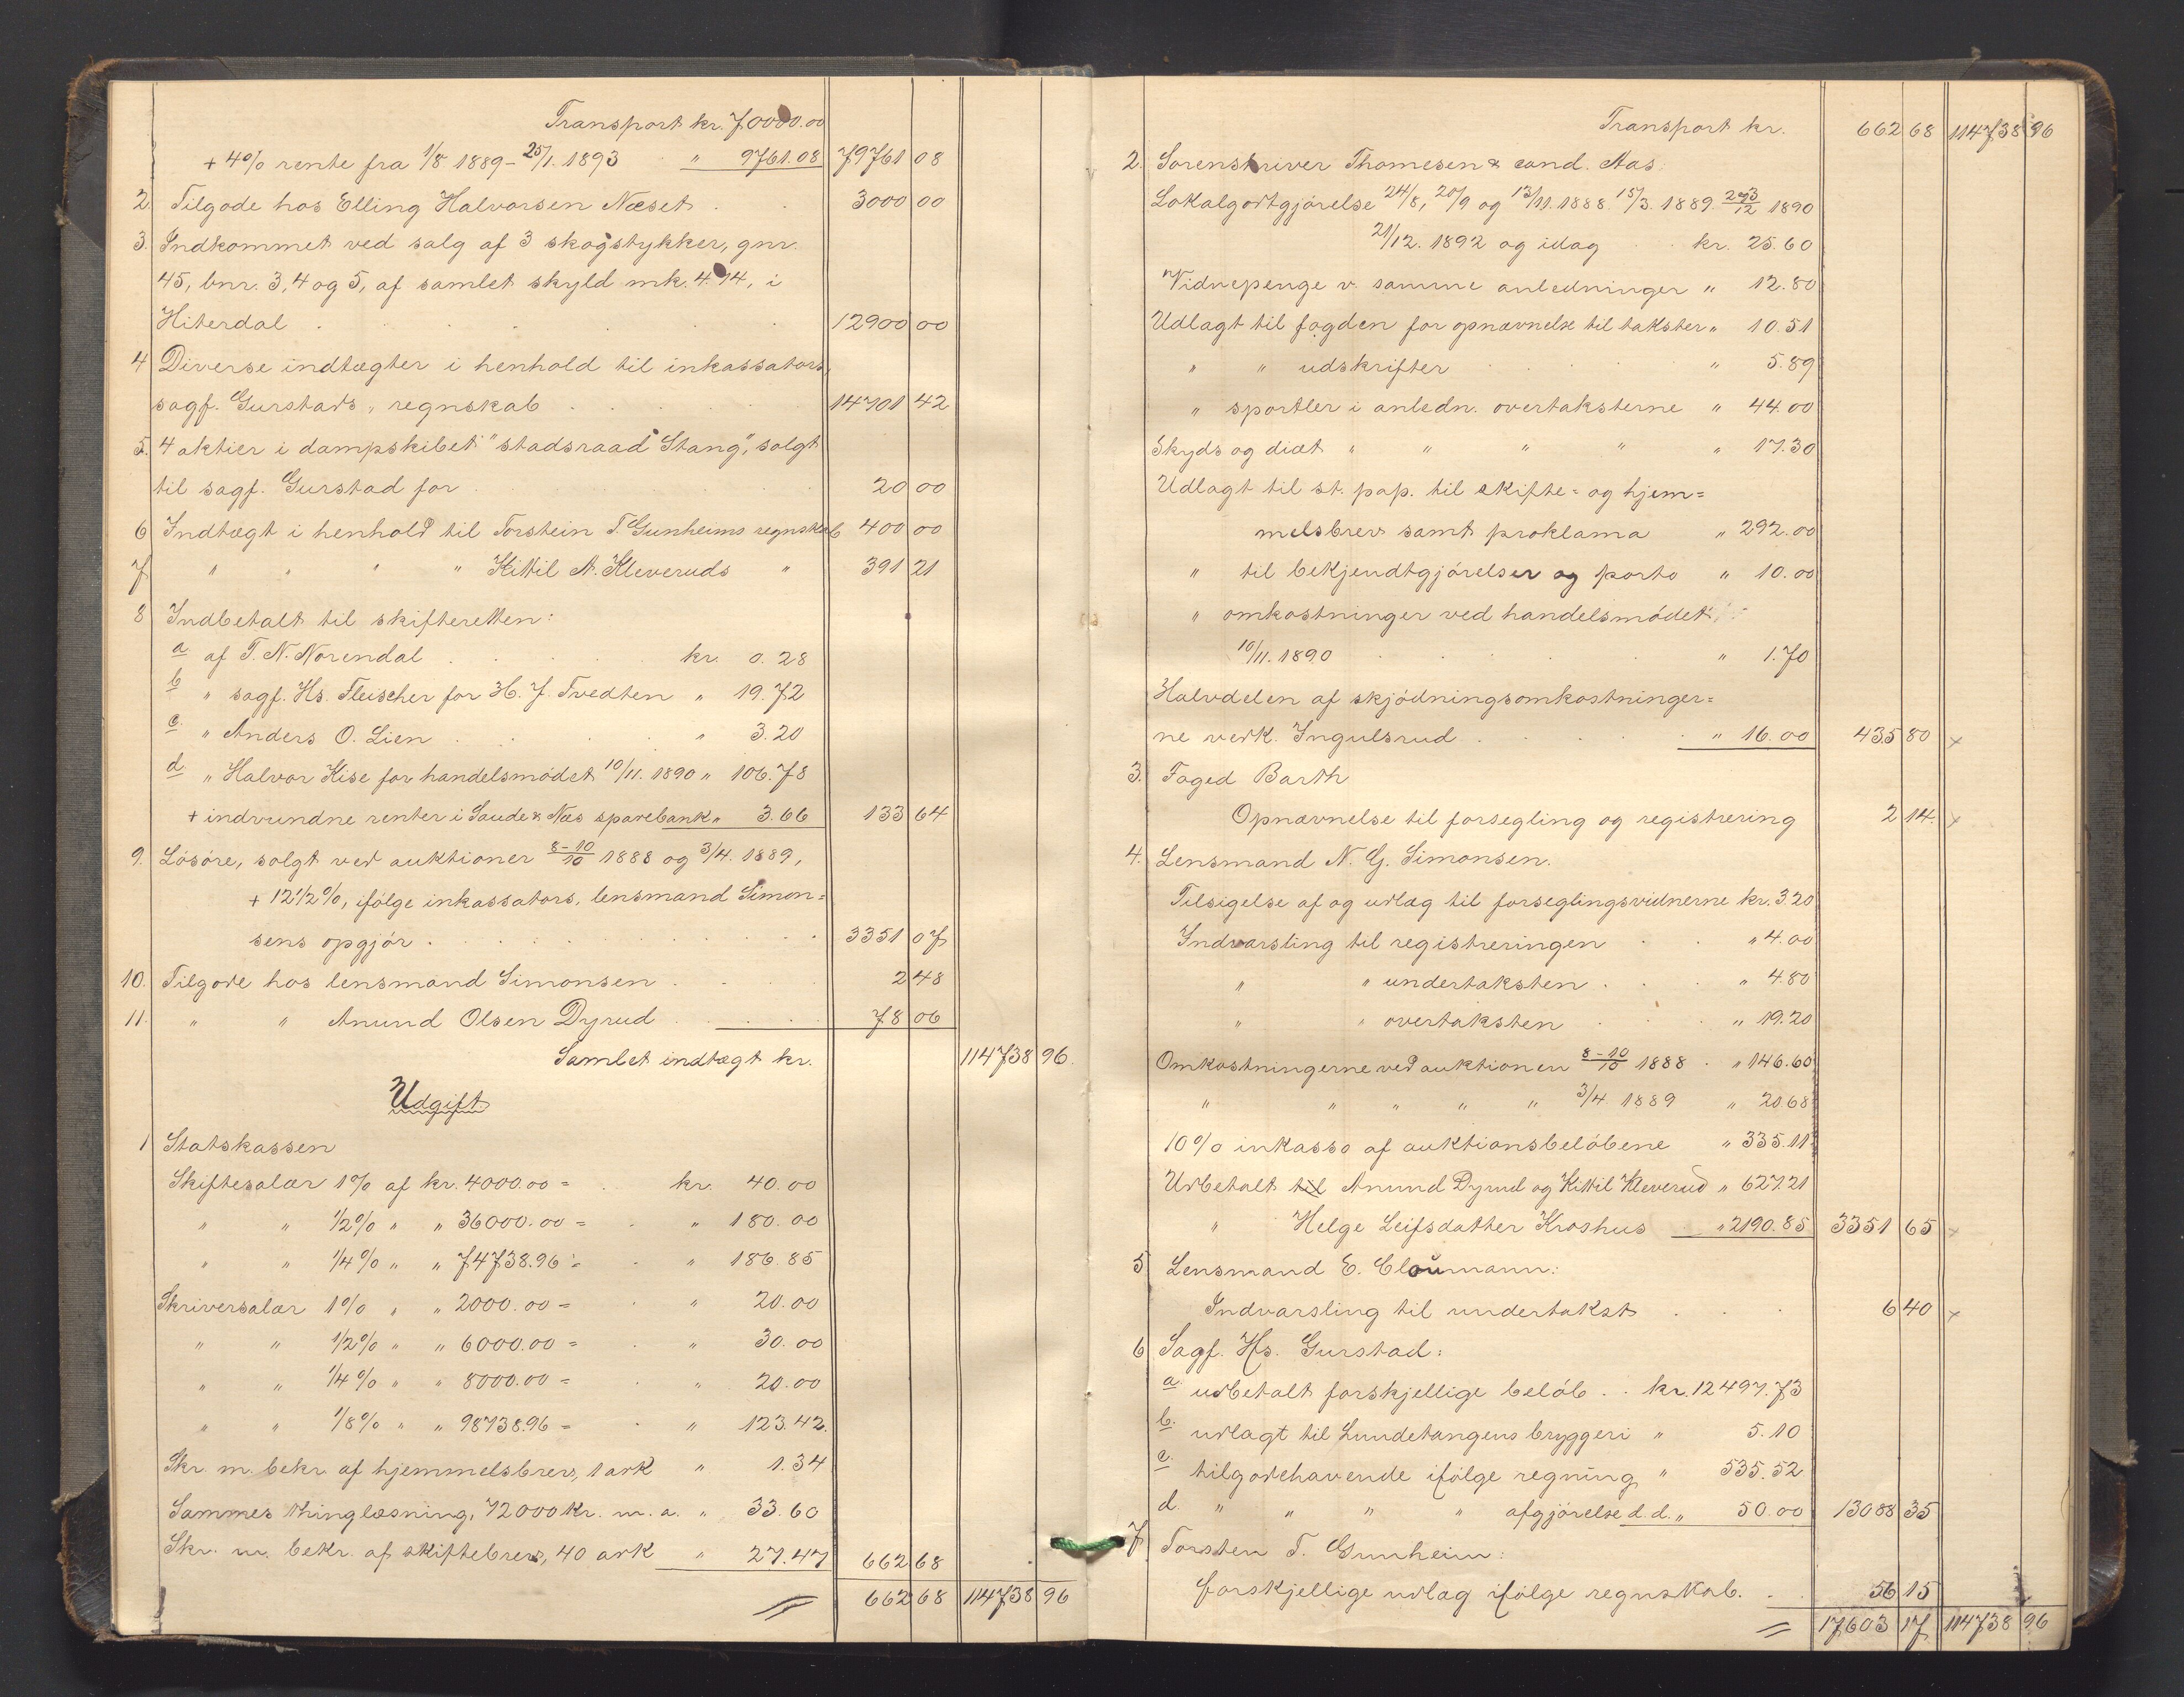 Transport kr. 70000.00
+ 4% rente fra 1/8 1889 - 25/1. 1893 " 9761.08 79761 08
2. Tilgode hos Elling Halvorsen Næset . . 3000 00
3. Indkommet ved salg af 3 skogstykker, gnr.
45, bnr. 3, 4 og 5, af samlet skyld mk. 4.14, i
Hiterdal . . . . . . 12900 00
4 Diverse indtægter i henhold til inkassators,
sagf. Gurstads, regnskab . . . . 14701 42
5. 4 aktier i dampskibet "stadsraad Stang", solgt
til sagf. Gurstad for . . . . 20 00
6 Indtægt i henhold til Torstein T. Gunheims regnskab 400 00
7 " " " " Kittil A. Kleveruds " 391 21
8 Indbetalt til skifteretten:
a af T. N. Norendal . . . . kr. 0.28
b " sagf. Hs. Fleischer for H. J. Tvedten " 19.72
c. " Anders O. Lien . . . . " 3.20
d " Halvor Kise for handelsmødet 10/11. 1890 " 106.78
+ indvundne renter i Saude & Næs sparebank " 3.66 133 64
9. Løsøre, solgt ved auktioner 8-10/10 1888 og 3/4. 1889,
+ 12 1/2 %, ifølge inkassators, lensmand Simon=
sens opgjør . . . . . . 3351 07
10. Tilgode hos lensmand Simonsen . . . . 2 48
11. " " Anund Olsen Dyrud . . . . 78 06
Samlet indtægt kr. 114738 96.
Udgift
1 Statskassen
Skiftesalær 1% af kr. 4000.00 = . kr. 40.00
" " 1/2% " " 36000.00 = . " 180.00
" " 1/4% " " 74738.96 = . " 186.85
Skriversalær 1% " " 2000.00 = " 20.00
" " 1/2% " " 6000.00 = . " 30.00
" " 1/4% " " 8000.00 = . " 20.00
" " 1/8% " " 98738.96 = . " 123.42.
Skr. m. bekr. af hjemmelsbrev, 1 ark " 1.34
Sammes thinglæsning, 72000 kr. m. a. " 33.60
Skr. m. bekr. af skiftebrev, 40 ark " 27.47 662 68
662 68 114738 96
Transport kr. 662 68 114738 96
2. Sorenskriver Thomesen & cand. Aas.
Lokalgodtgjørelse 24/8, 20/9 og 13/11. 1888. 15/3. 1889. 2 og 3/12 1890
21/12. 1892 og idag . . kr. 25.60
Vidnepenge v. samme anledninger " 12.80
Udlagt til fogden for opnævnelse til takster " 10.51
" " udskrifter . . . . " 5.89
" sportler i anledn. overtaksterne " 44.00
Skyds og diæt " " " " " 17.30
Udlagt til st. pap. til skifte= og hjem=
melsbrev samt proklama " 292.00
" til bekjendtgjørelser og porto " 10.00
" omkostninger ved handelsmødet
10/11. 1890 . . . . . " 1.70
Halvdelen af skjødningsomkostninger=
ne vedk. Ingulsrud . . . . " 16.00 435 80 x
3. Foged Barth
Opnævnelse til forsegling og registrering 2 14. x
4. Lensmand N. G. Simonsen.
Tilsigelse af og udlæg til forseglingsvidnerne kr. 3.20
Indvarsling til registreringen . . " 4.00
" " undertaksten . . " 4.80
" " overtaksten . . " 19.20
Omkostningerne ved auktionen 8-10/10 1888 . " 146.60
" " " " " 3/4. 1889 " 20.68
10% inkasso af auktionsbeløbene " 335.11
Udbetalt til Anund Dyrud og Kittil Kleverud " 627.21
" Helge Leifsdatter Kroshus " 2190.85 3351 65 x
5 Lensmand E. Cloumann:
Indvarsling til undertakst . . . 6 40 x
6 Sagf. Hs. Gurstad:
a. udbetalt forskjellige beløb . . kr. 12497.73
b. udlagt til Lundetangens bryggeri " 5.10
c. tilgodehavende ifølge regning " 535.52
d. " " " " afgjørelse d. d. " 50.00 13088 35
7 Torsten T. Gunheim:
forskjellige udlæg ifølge regnskab. . . 56 15
17603 17 114738 96